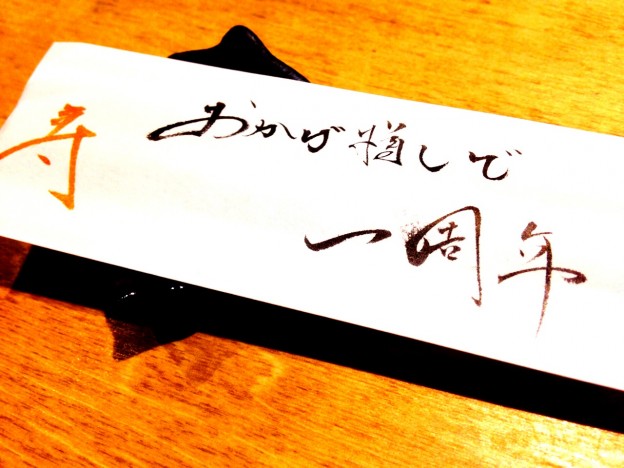 寿
おかげ樽しで
一周年